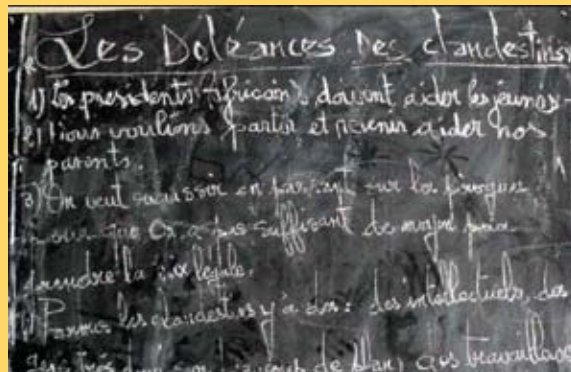 Les Doléances Des clandestins
1) Les presidents Africains doivent aider les jeunes.
2) Nous voulions partir et revenir aider nos
parents.
3) On veut reussir en partant sur les pirogues
que On a pas suffisant de moyen pour
prendre la voie légale.
4) Parmis les clandestins y'a des: des intellectuels, des
gens très de